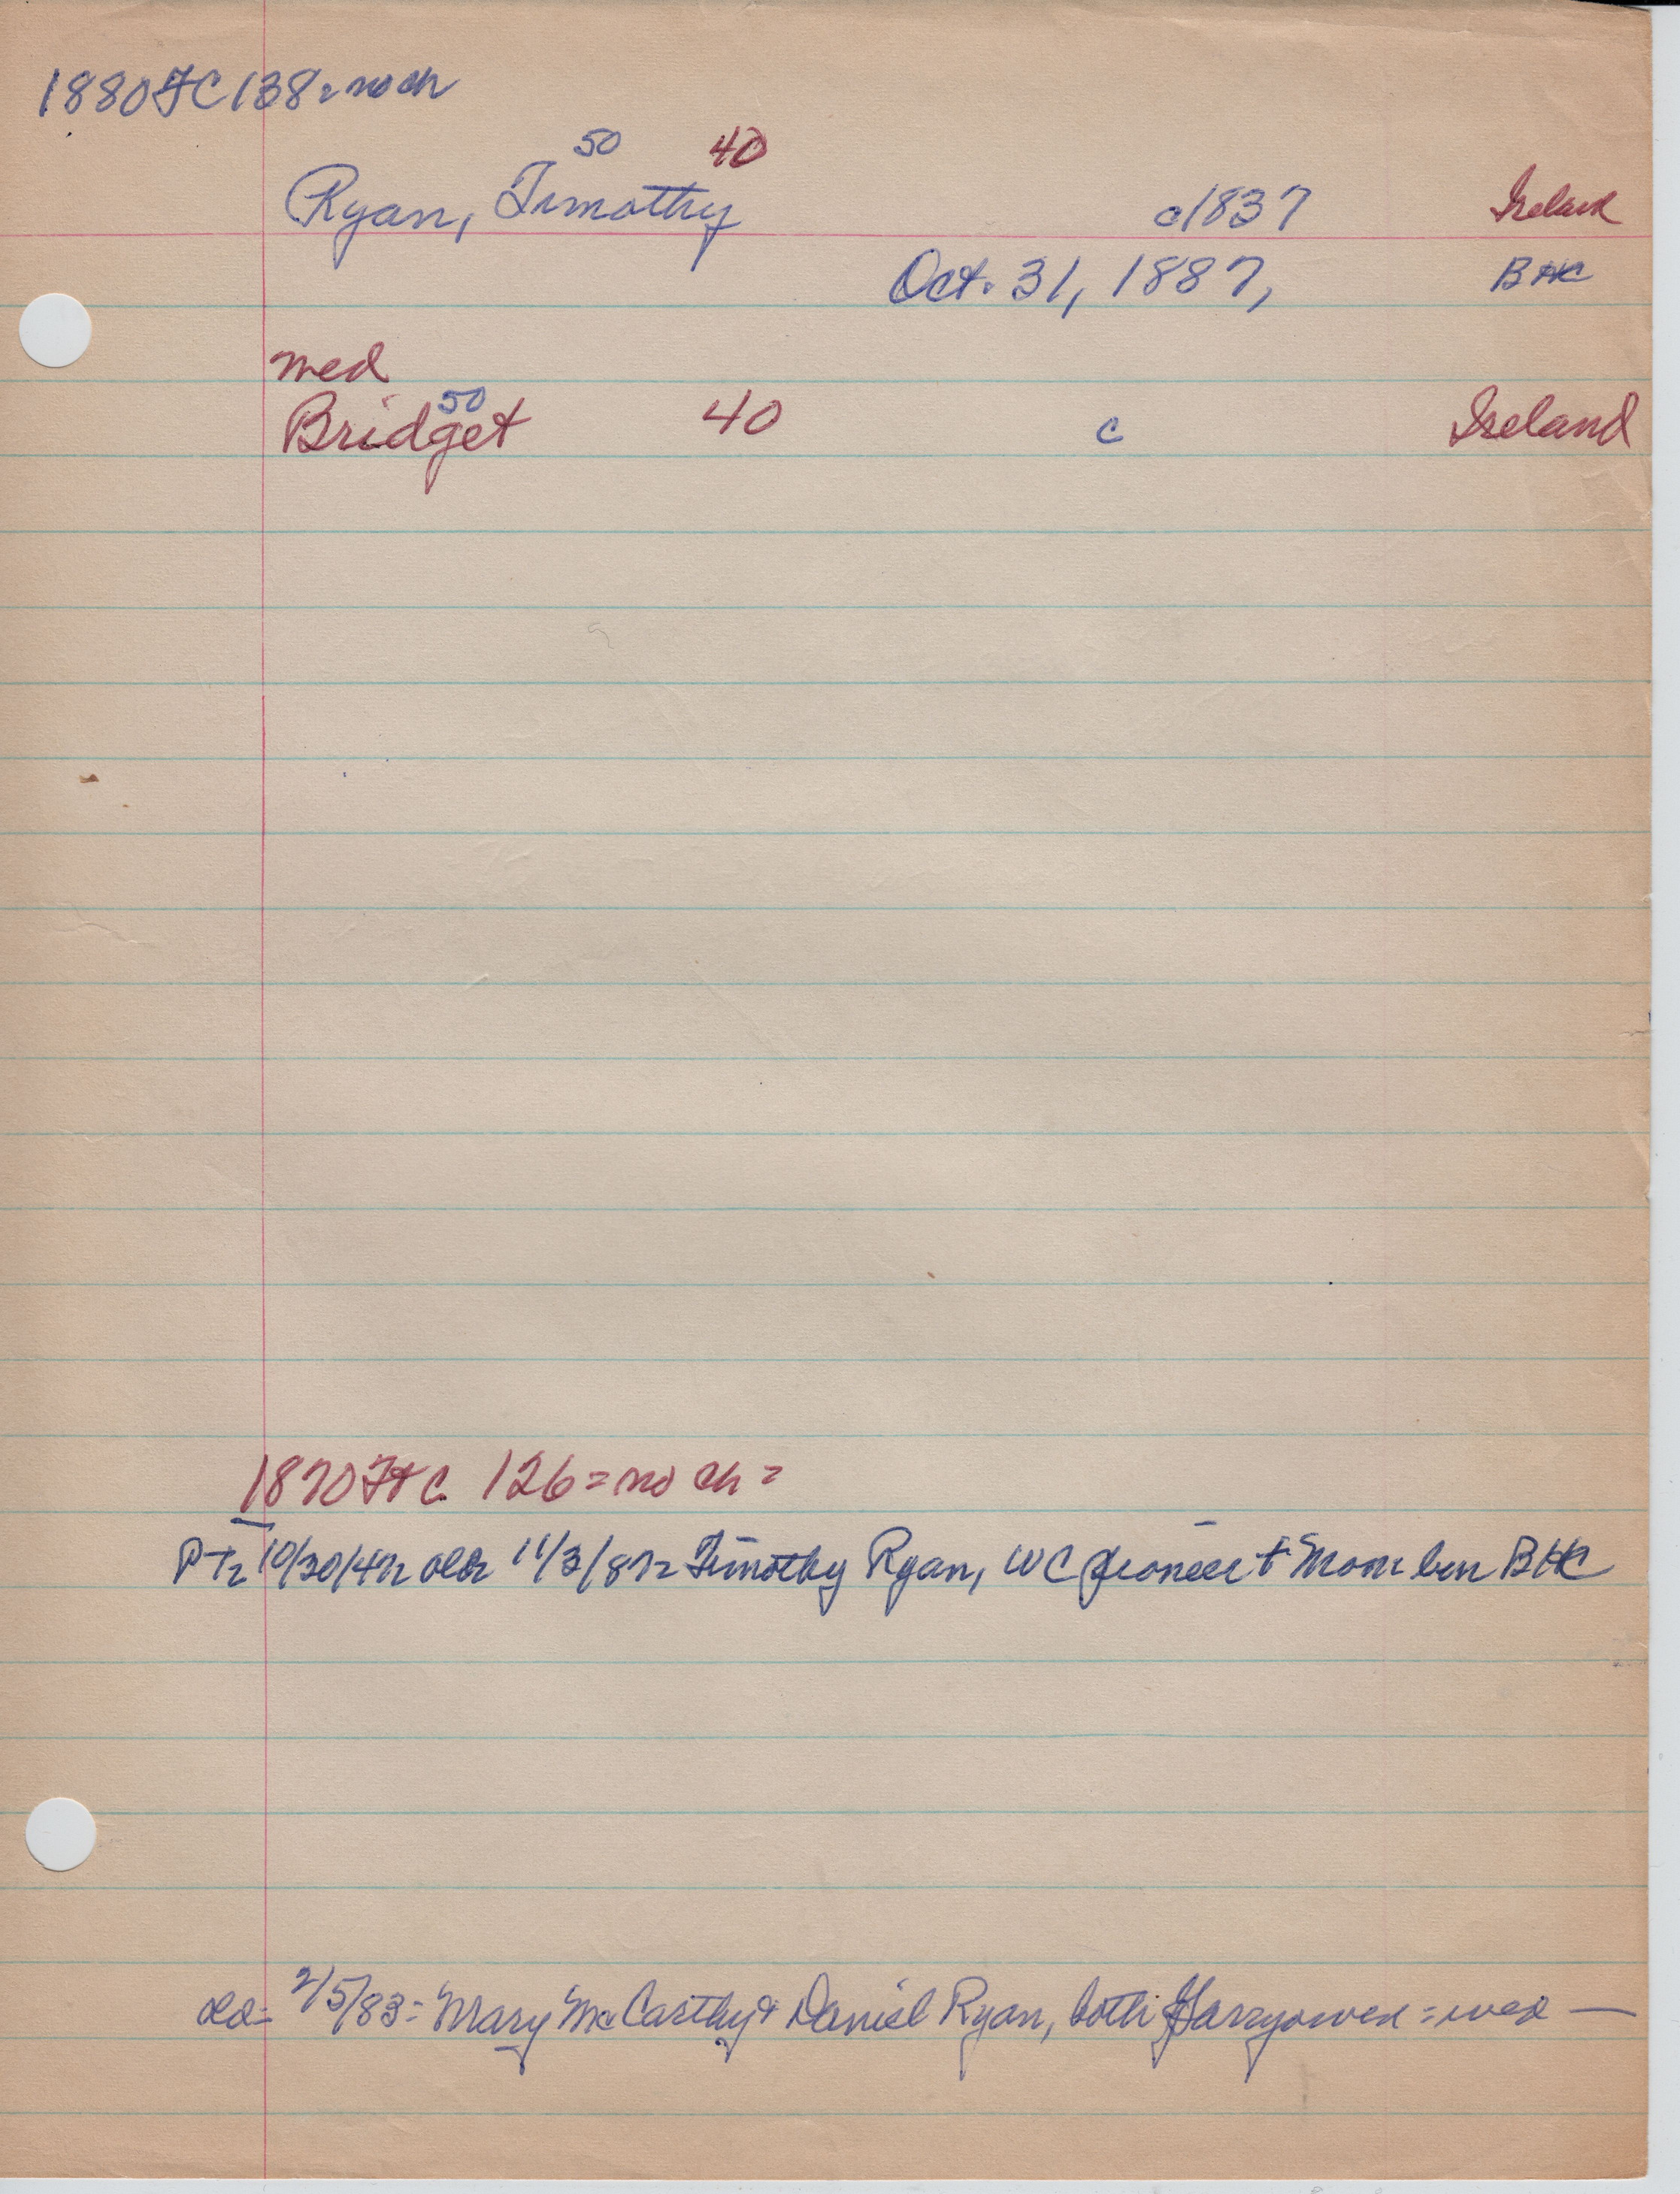 1880 FC 138 = no ch
50 40
Ryan, Timothy c1837 Ireland
Oct. 31, 1887, BHC
med
50
Bridget 40 c Ireland
1870 Ft C. 126 = no ch =
10/30/47= 11/3/87= Timothy Ryan, WC pioneer + BHC
2/5/83 = Mary McCarthy & Daniel Ryan, both Garryowen = wed —